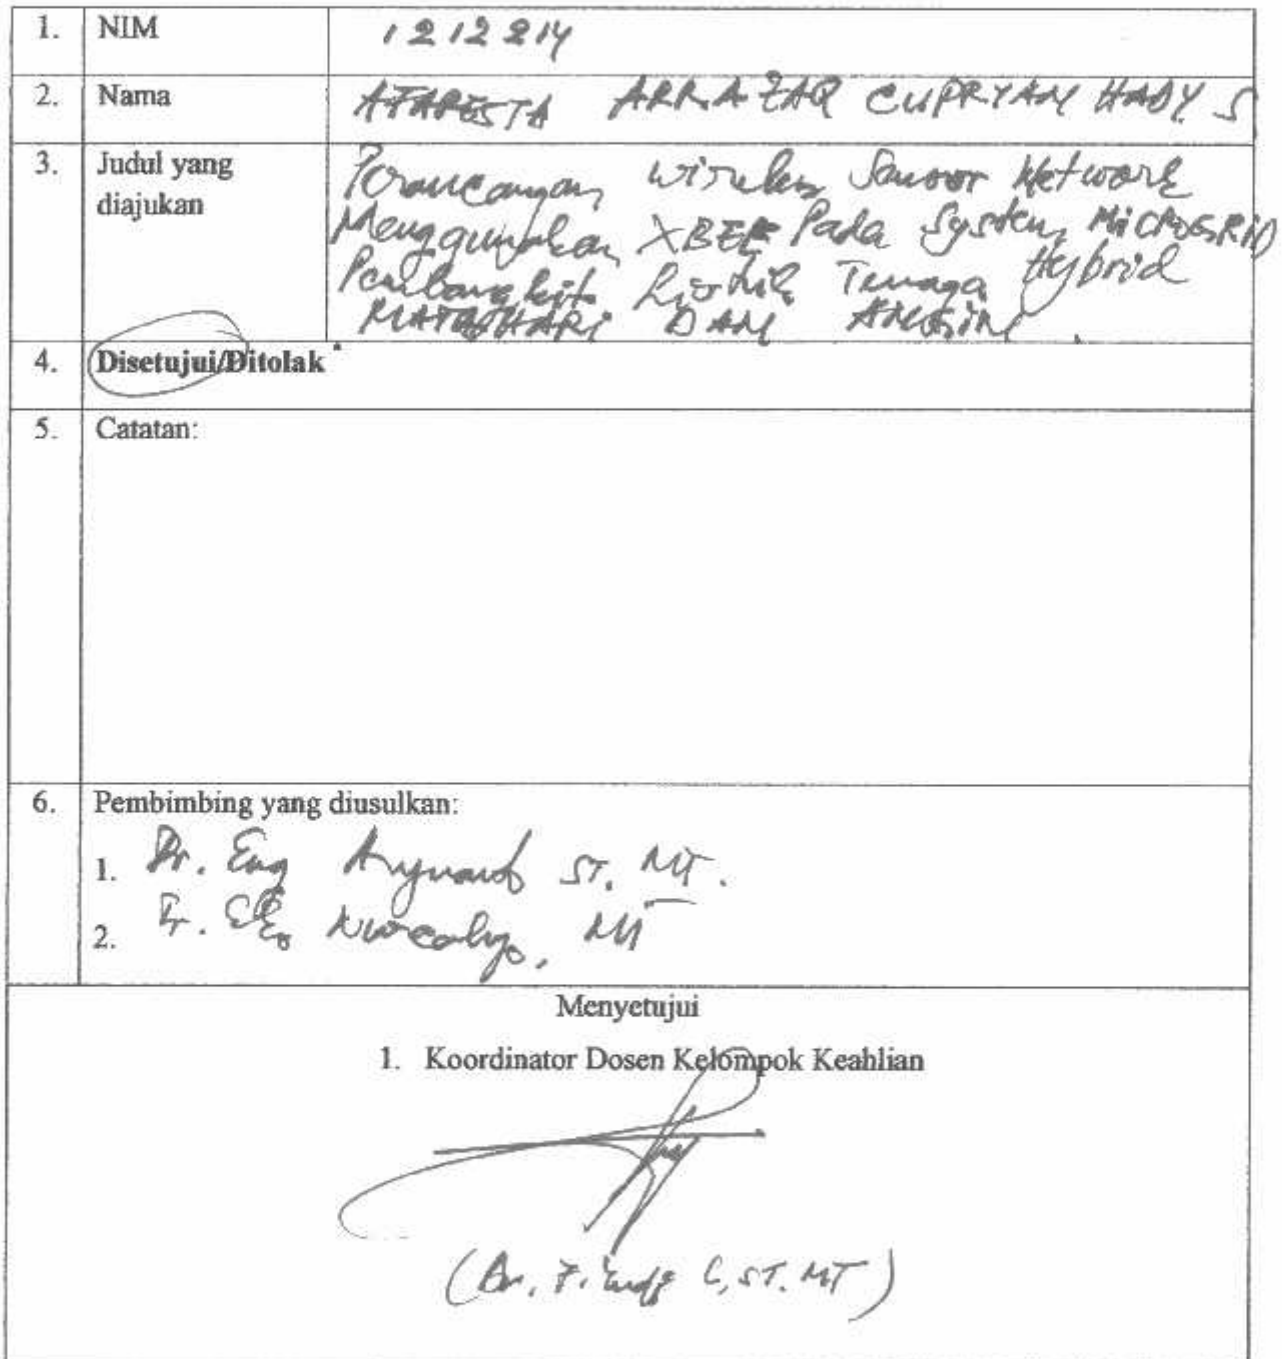 1. NIM 1212214
2. Nama ATAPESTA ARRAZAQ CUPRYAN HADY S
3. Judul yang diajukan Perancangan Wireless Sensor Network
Menggunakan XBEE Pada System MICROGRID
Pembangkit Listrik Tenaga Hybrid
MATAHARI DAN ANGIN.
4. Disetujui/Ditolak *
5. Catatan:
6. Pembimbing yang diusulkan:
1. Dr. Eng Aryuanto ST. MT.
2. Ir. Eko Nurcahyo, MT
Menyetujui
1. Koordinator Dosen Kelompok Keahlian
(Dr. F. Yudi L, ST. MT)